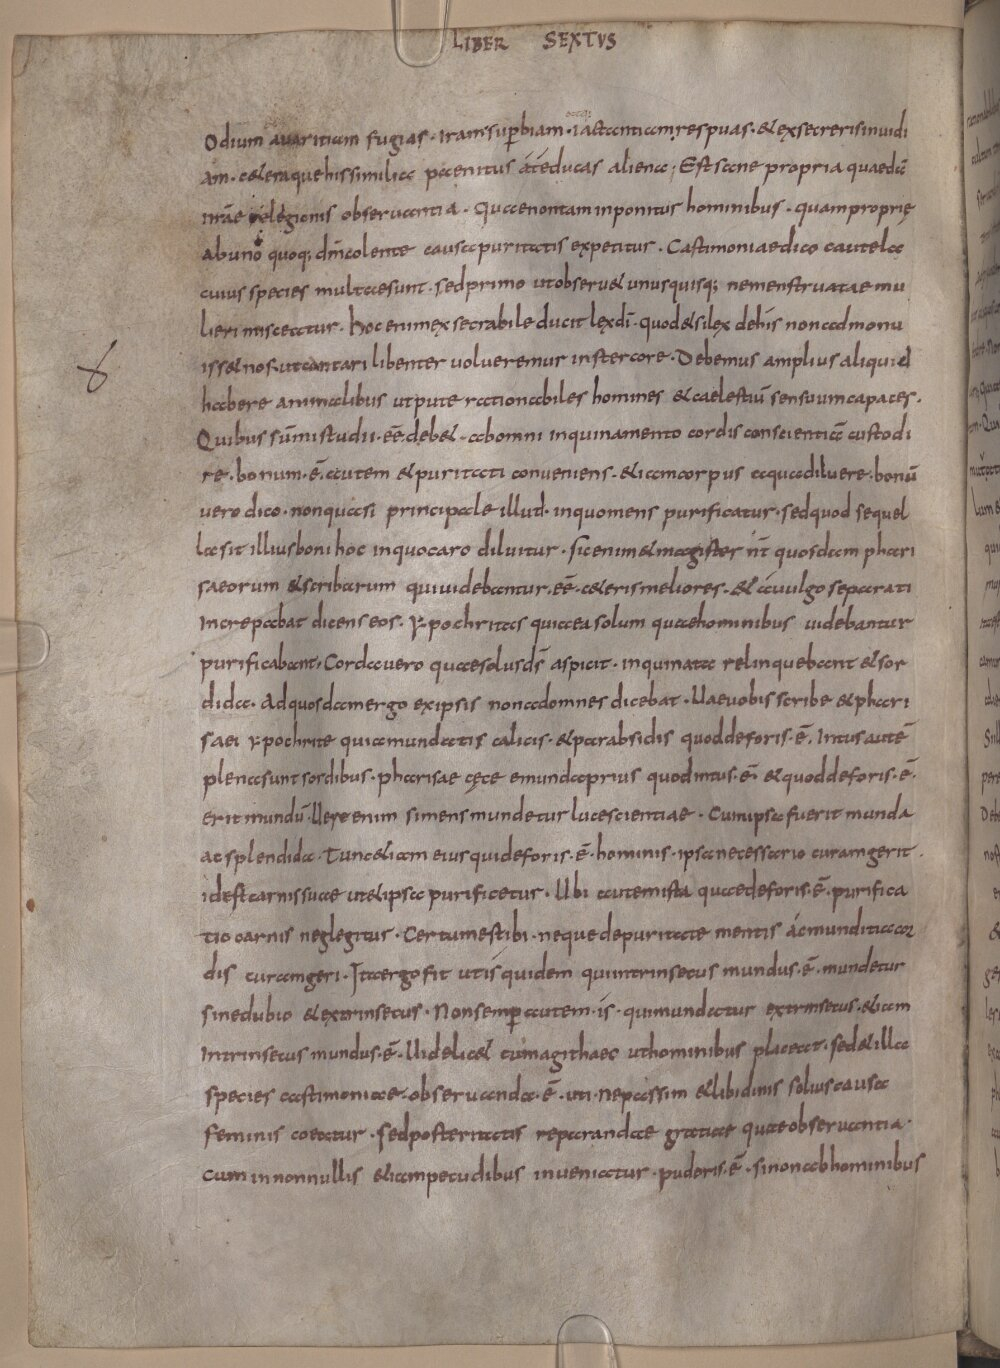 LIBER SEXTVS
Odium auaritiam fugias · iram sup̄biam · iactantiam respuas · & exsecreris inuidi
am · c&eraque his similia paenitus á té educas aliena ; Est sane propria quaedā
nr̄ae relegionis obseruantia · Quae non tam inponitur hominibus · quam proprię
ab uno quoq; dm̄ colente causa puritatis expetitur · Castimoniae dico cautela
cuius species multae sunt · sed primo ut obseru& unusquisq; ne menstruatae mu
lieri misceatur · hoc enim exsecrabile ducit lex dī · quod & si lex de his non admonu
iss& nos · ut cantari libenter uolueremur in stercore · Debemus amplius aliquid
habere animalibus utpute rationabiles homines & caelestiū sensuum capaces ·
Quibus sūmi studii · eē · deb& · ab omni inquinamento cordis conscientiā custodi
re · bonum · ē · autem & puritati conueniens · & iam corpus aqua diluere · bonū
uero dico · non quasi principale illud · in quo mens purificatur · sed quod sequel
la sit illius boni hoc in quo caro diluitur · sic enim & magister nr̄ quosdam phari
saeorum & scribarum qui uidebantur · eē · c&eris meliores · & á uulgo separati
increpabat dicens eos · ypochritas quia ea solum quae hominibus uidebantur
purificabant · Corda uero quae solus dš aspicit · inquinata relinquebant & sor
dida · Ad quosdam ergo ex ipsis non ad omnes dicebat · Uae uobis scribe & phari
saei ypochrite quia mundatis calicis · & parabsidis quod deforis · ē · Intus autē
plena sunt sordibus · pharisae cęce emunda prius quod intus · ē · & quod deforis · ē ·
erit mundū · Uere enim si mens mundetur luce scientiae · Cum ipsa fuerit munda
ac splendida · Tunc & iam eius qui deforis · ē · hominis · ipsa necessario curam gerit ·
id est carnis suae ut & ipsa purificetur · Ubi autem ista quae deforis · ē · purifica
tio carnis neglegitur · Certum est ibi · neque de puritate mentis ác munditia cor
dis curam geri · Ita ergo fit ut is quidem qui intrinsecus mundus · ē · mundetur
sine dubio & extrinsecus · Non semp̄ autem · is · qui mundatur extrinsecus · & iam
intrinsecus mundus · ē · Uidelic& cum agit haec ut hominibus placeat · sed & illa
species castimoniae · obseruanda · ē · uti · ne passim & libidinis solius causa
feminis coeatur · sed posteritatis reparandae gratiae quae obseruantia ·
cum in nonnullis & iam pecudibus inueniatur · puderis · ē · si non ab hominibus